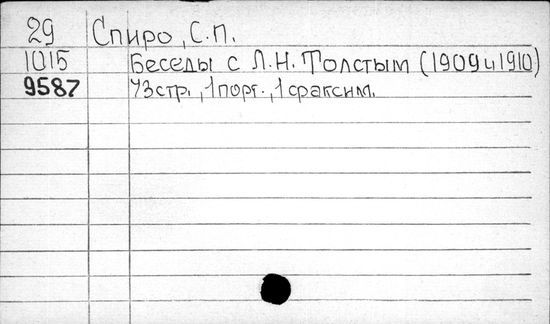 29 Спиро, С.П.
1015 Беседы с Л.Н. Толстым (1909 и 1910)
9587 43 стр., 1 порт., 1 факсим.